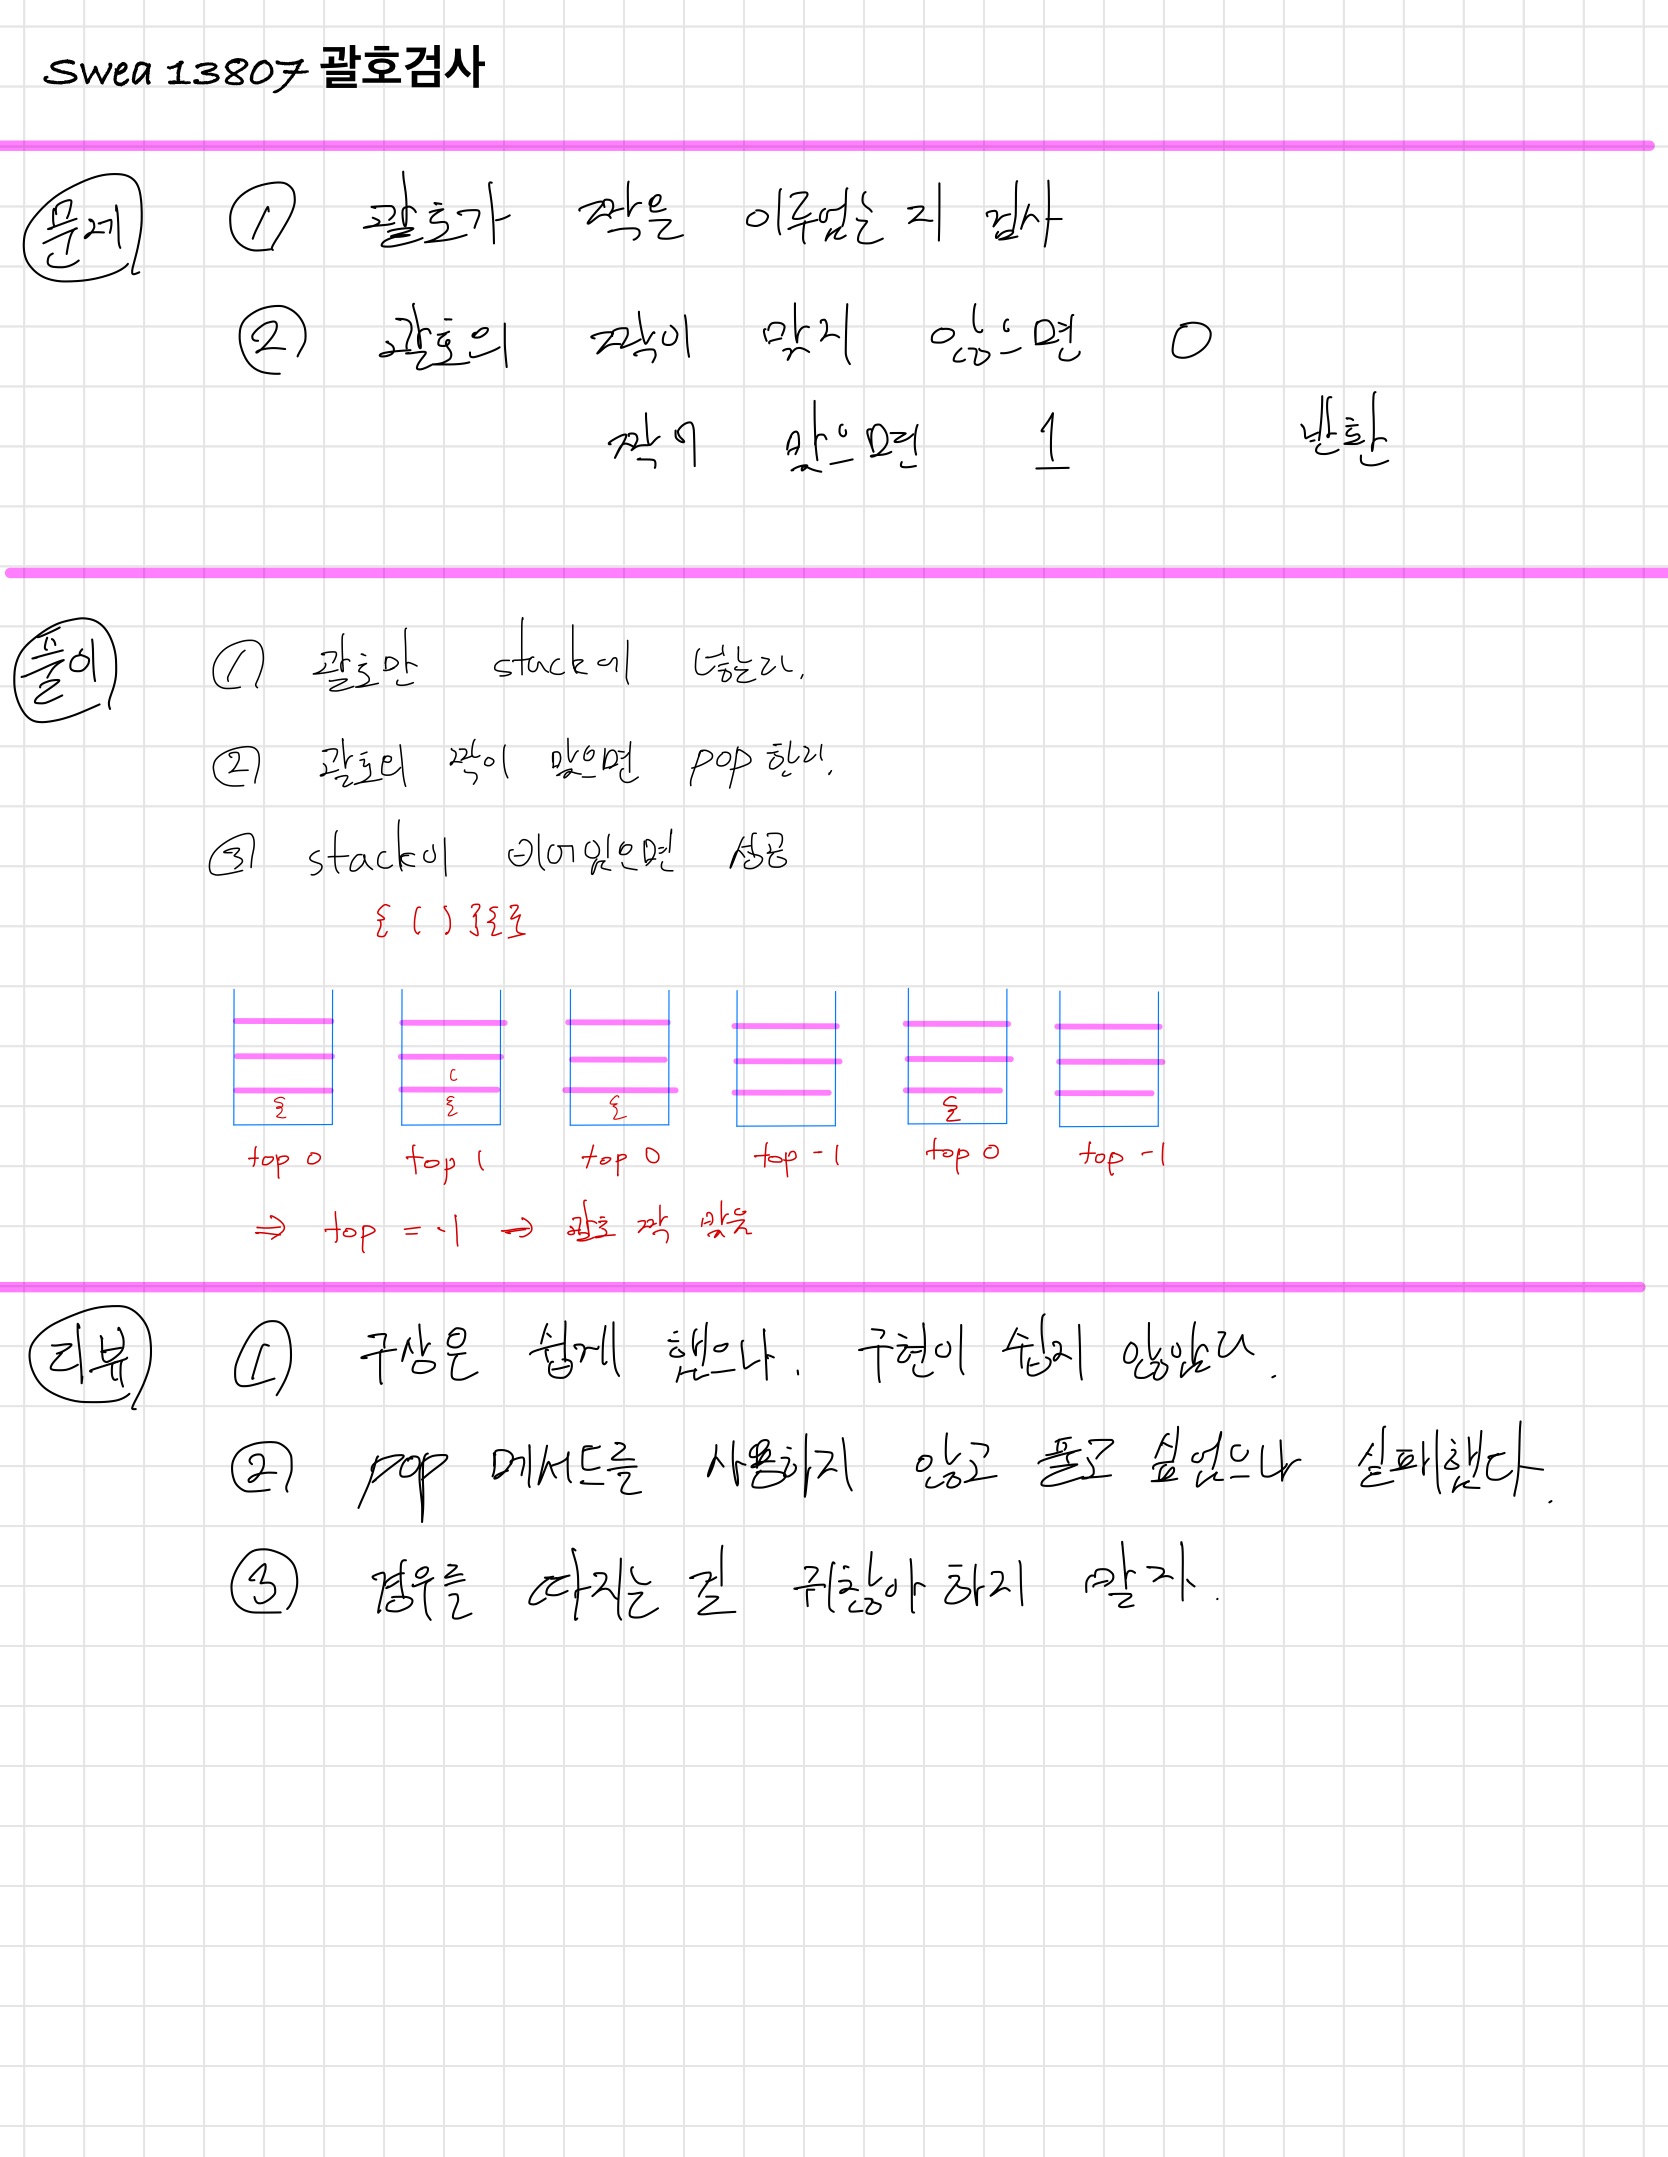 Swea 13807 괄호검사
문제 ① 괄호가 짝을 이루었는지 검사
② 괄호의 짝이 맞지 않으면 0
짝이 맞으면 1 반환
풀이 ① 괄호만 stack에 넣는다.
② 괄호의 짝이 맞으면 pop한다.
③ stack이 비어있으면 성공
{ ( ) } { }
( 
{ { { {
top 0 top 1 top 0 top -1 top 0 top -1
⇒ top = -1 → 괄호 짝 맞음
리뷰 ① 구상은 쉽게 했으나. 구현이 쉽지 않았다.
② pop 메서드를 사용하지 않고 풀고 싶었으나 실패했다.
③ 경우를 따지는 걸 귀찮아 하지 말자.